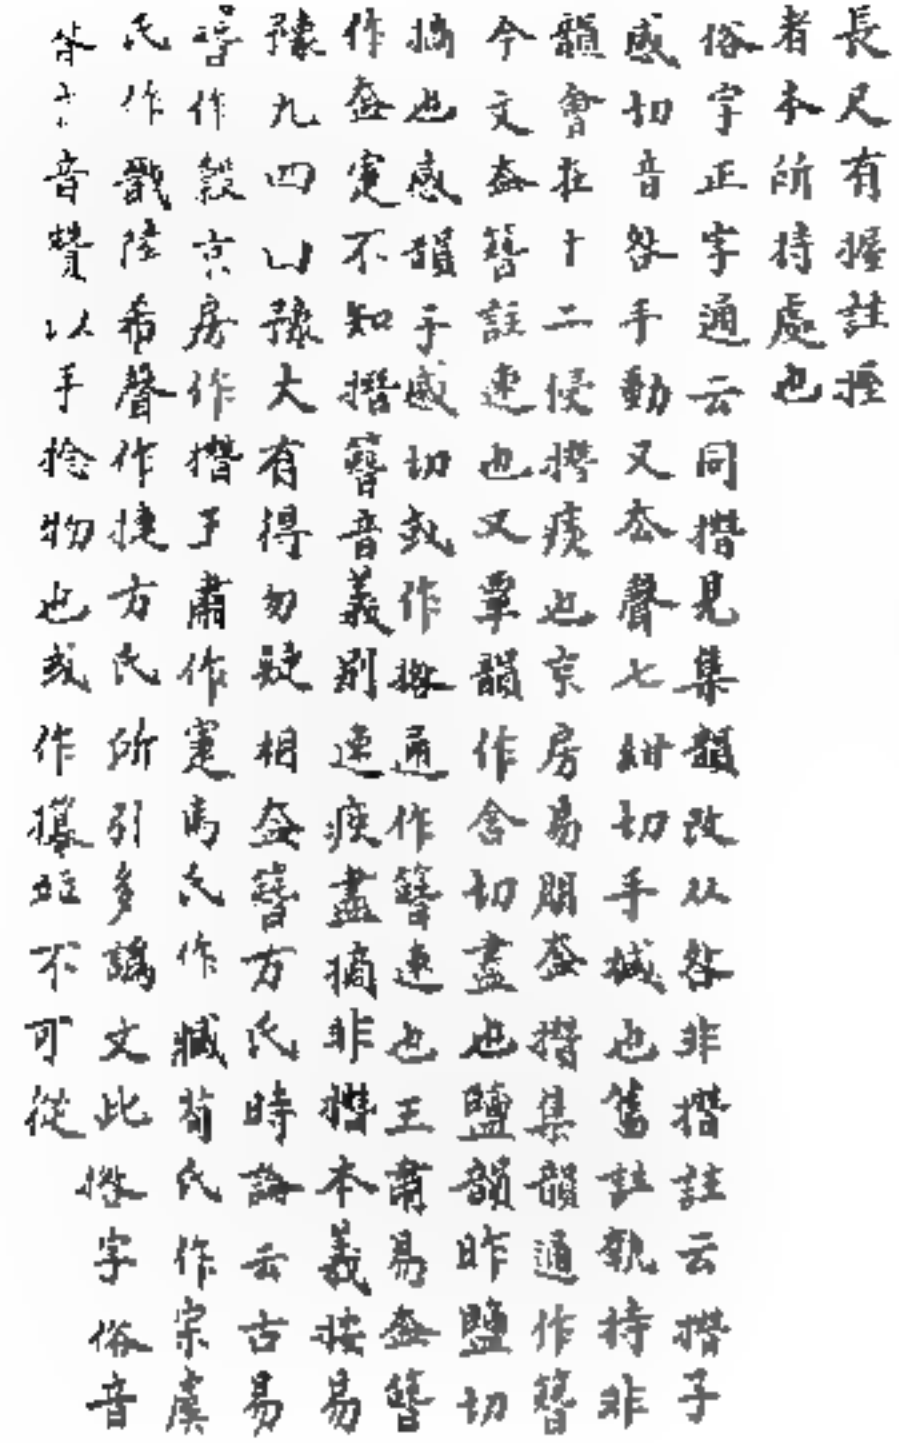 長尺有握註握
者本所持處也
俗字正字通云同撍見集韻改从咎非撍註云撍子
感切音昝手動又去聲七紺切手撼也舊註執持非
韻會在十二侵撍疾也京房易朋盍撍集韻通作簪
今文盍簪註速也又覃韻作含切盡也鹽韻昨鹽切
摘也感韻子感切或作撍通作簪速也王肅易盍簪
作盍寁不知撍簪音義別速疾盡摘非撍本義按易
豫九四曰豫大有得勿疑相盍簪方氏時論云古易
簪作㲄京房作撍王肅作寁馬氏作臧荀氏作宗虞
氏作戠陸希聲作捷方氏所引多譌文此撍字俗音
昝 音贊以手捻物也或作攥 不可從